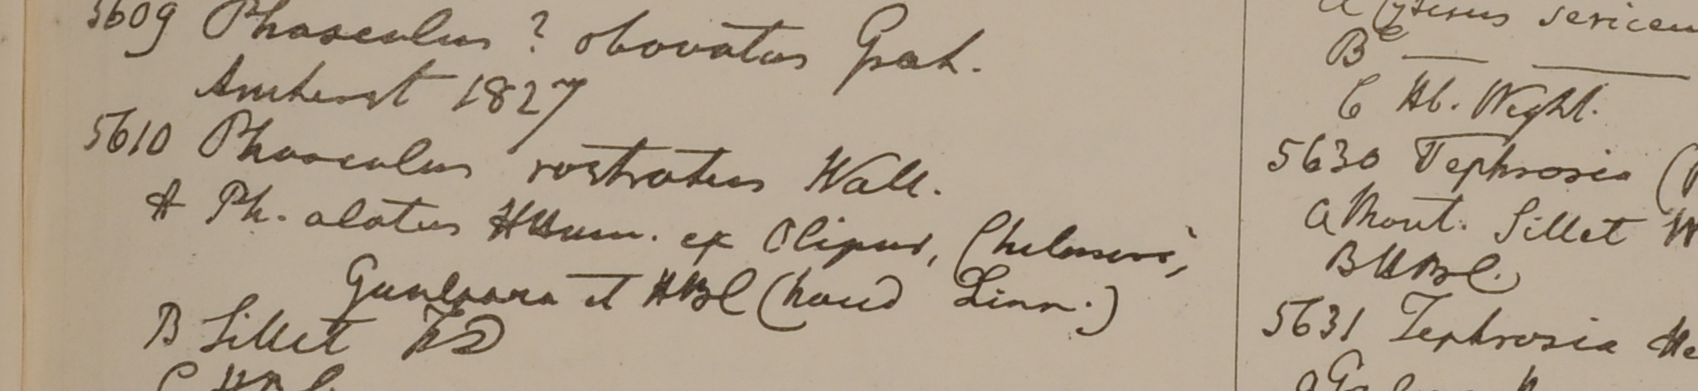 5609 Phaseolus ? obovatus Grah.
Amherst 1827
5610 Phaseolus rostratus Wall.
A Ph. alatus HHam. ex Olipur,
Gualpara et HBC (haud Linn.)
B Sillet FD
C HBC
B
C Hb. Wight.
5630 Tephrosia
a Mont. Sillet W
B HBC.
5631 Tephrosia He